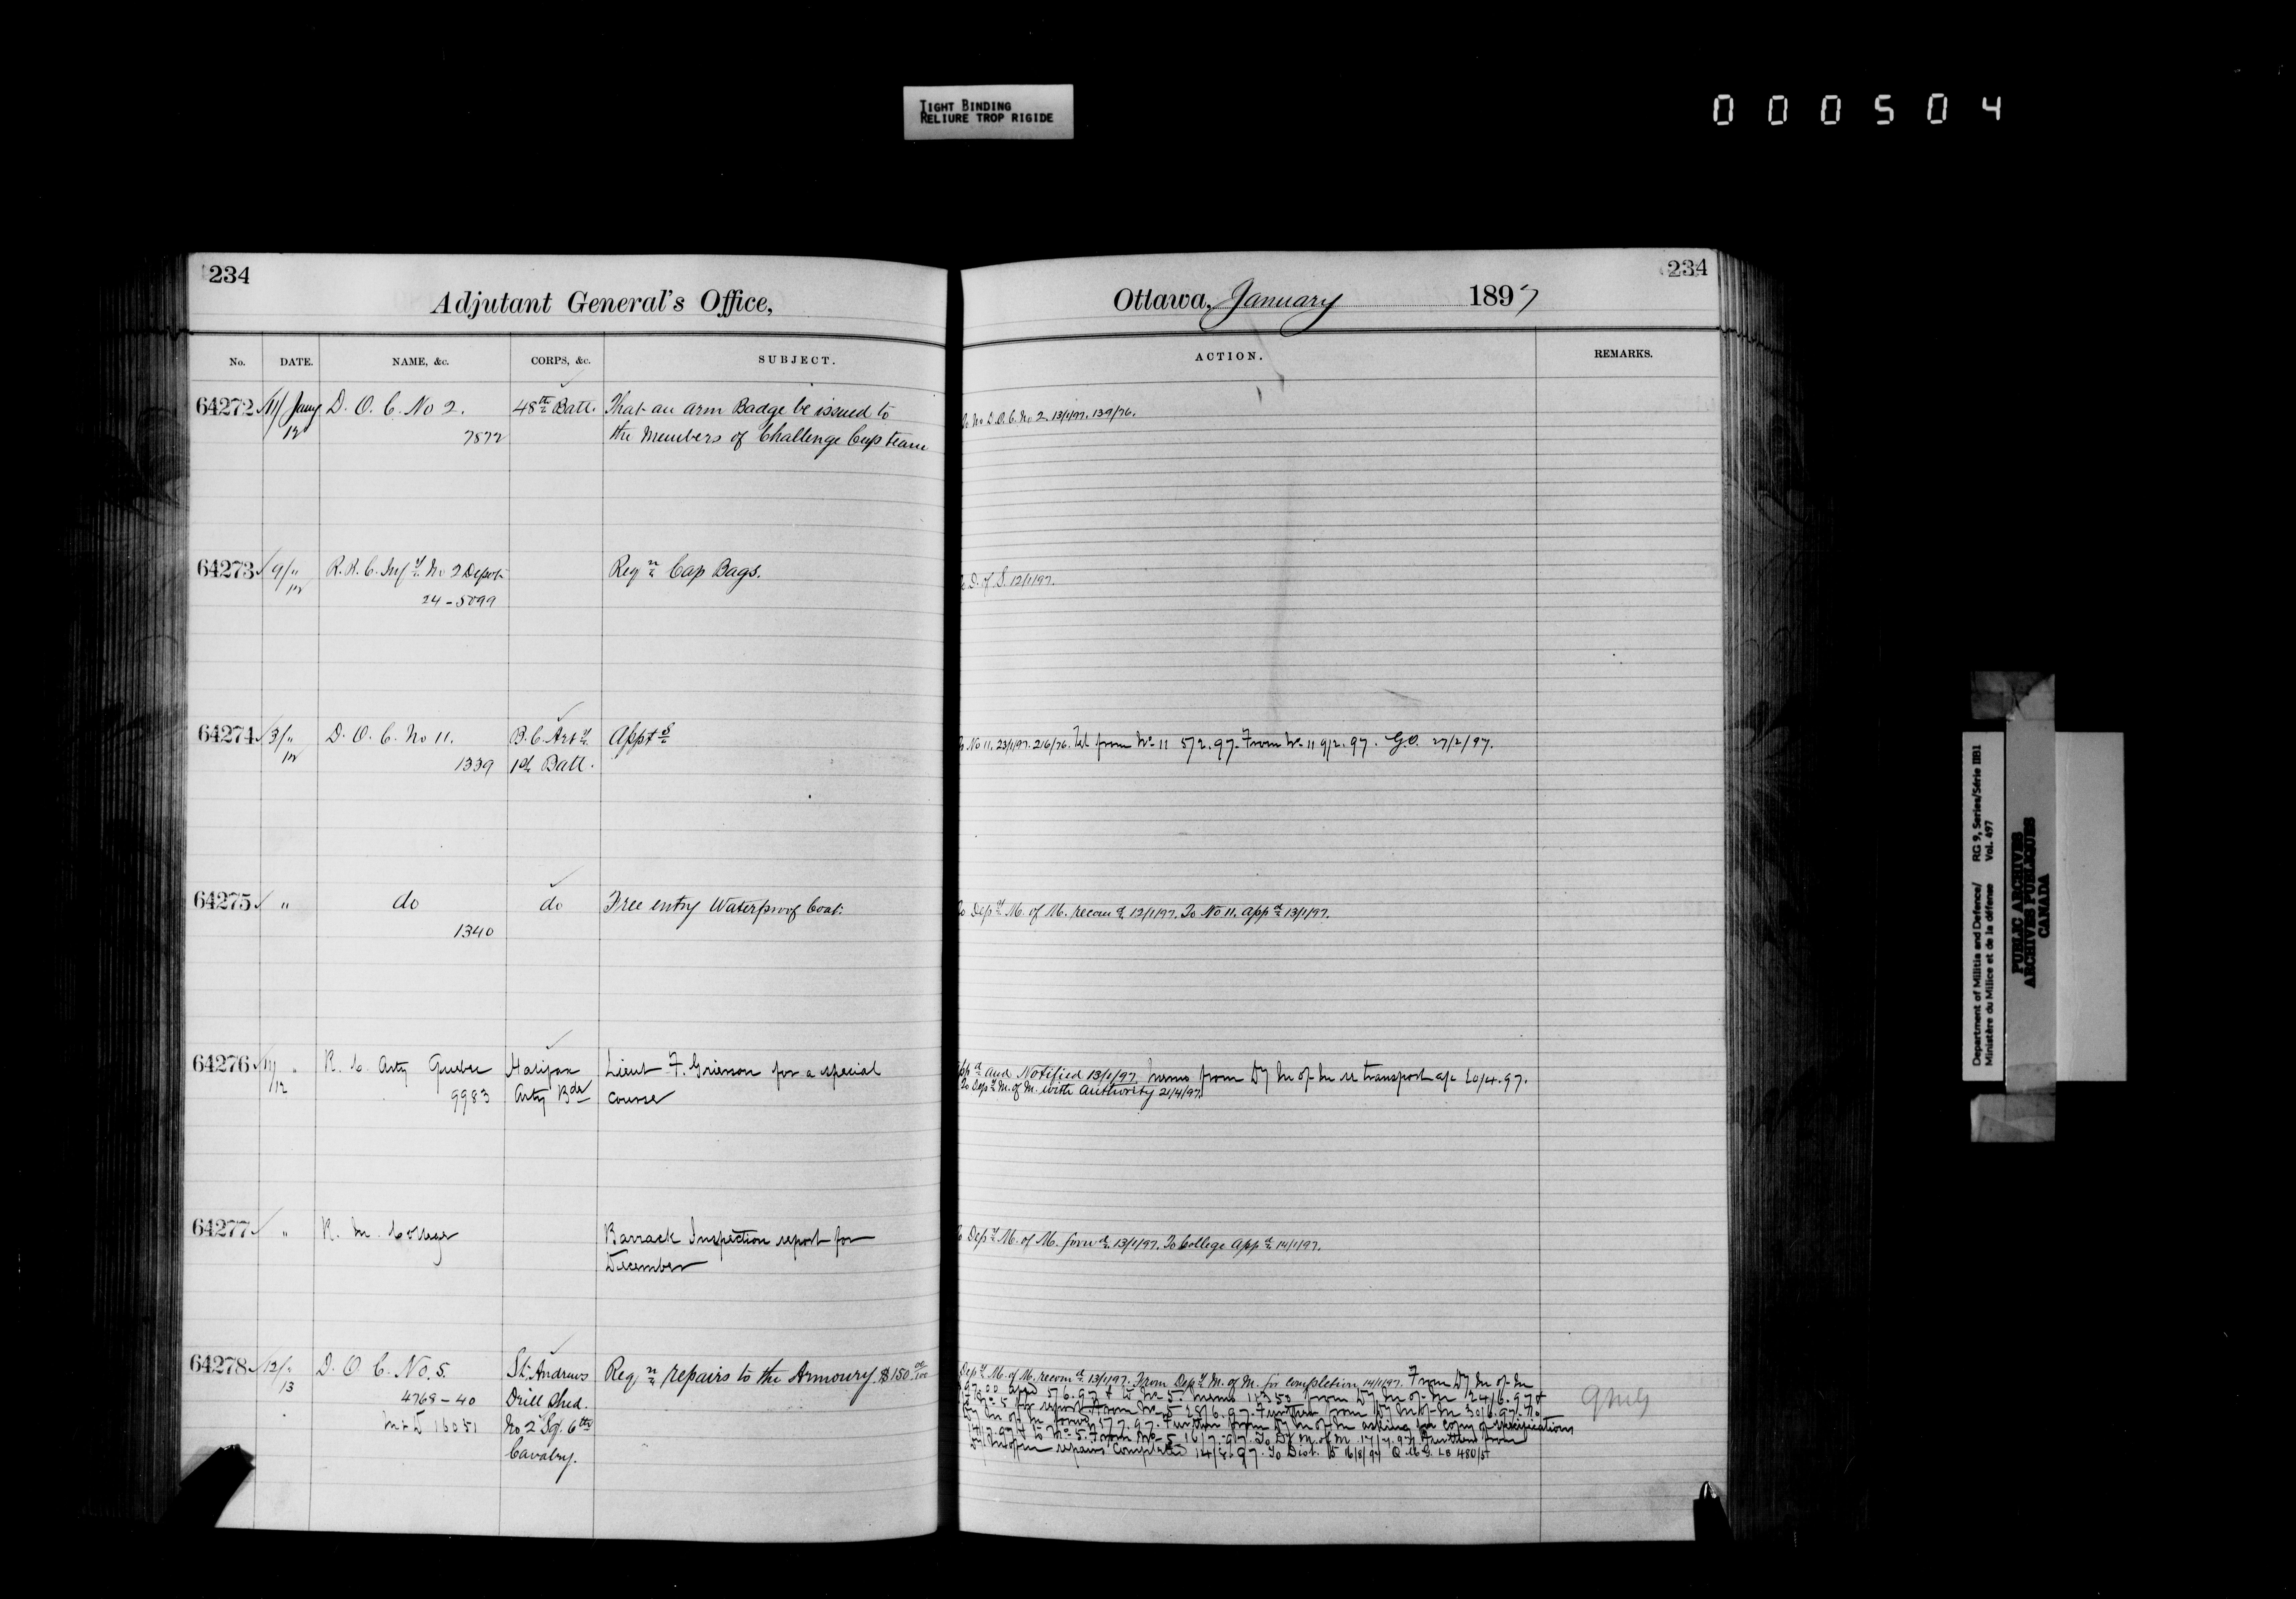 TIGHT BINDING
RELIURE TROP RIGIDE
000504
234
Adjutant General's Office,
No. DATE. NAME, &c. CORPS, &c. SUBJECT.
64272 11/Jany D. O. C. No 2. 48th Batt. That an arm Badge be issued to
12 7872 the Members of Challenge Cup team
64273 9/" R. R. C. Infy. No 2 Depot Reqn Cap Bags.
12 24-5099
64274 3/" D. O. C. No 11. B. C. Arty. Appts
12 1339 1st Batt.
64275 " do do Free entry Waterproof Coat.
1340
64276 11/" R. C. Arty Quebec Halifax Lieut F. Grierson for a special
12 9983 Arty Bde course
64277 " R. M. College Barrack Inspection report for
December
64278 12/" D. O. C. No. 5. St. Andrews Reqn repairs to the Armoury. $150 00/100
13 4768-40 Drill Shed.
16051 No 2 Sq. 6th
Cavalry.
234
Ottawa, January 1897
ACTION. REMARKS.
To No D.O.C. No 2. 13/1/97. 139/76.
D. of S. 12/1/97.
No 11. 23/1/97. 216/76. Tel from No 11 5/2.97. From No 11 9/2.97. G.O. 27/2/97.
To Depy M. of M. recomd. 12/1/97. To No 11. appd 13/1/97.
Appd and Notified 13/1/97. Memo from Dy M of M re transport a/c 20/4.97.
To Depy M. of M. with authority 21/4/97.
To Depy M. of M. forwd. 13/1/97. To College Appd. 14/1/97.
Depy M. of M. recomd. 13/1/97. From Depy M. of M. for completion 14/1/97. From Dy M of M
5/6.97 to No 5. Memo from Dy M of M 24/6.97
No 5 for report. From No 5 28/6.97. Further from Dy M of M 30/6.97. To
Dy M of M 5/7.97. Further from Dy M of M asking for copy of specifications
to No 5. From No 5 16/7.97. To Dy M. of M. 17/7.97. Further from
repairs completed 14/8.97. To Dist. 5 16/8/97 Q.M.G. LB 480/5
Department of Militia and Defence/ RG 9, Series/Série IIB1
Ministère du Milice et de la défense Vol. 497
PUBLIC ARCHIVES
ARCHIVES PUBLIQUES
CANADA